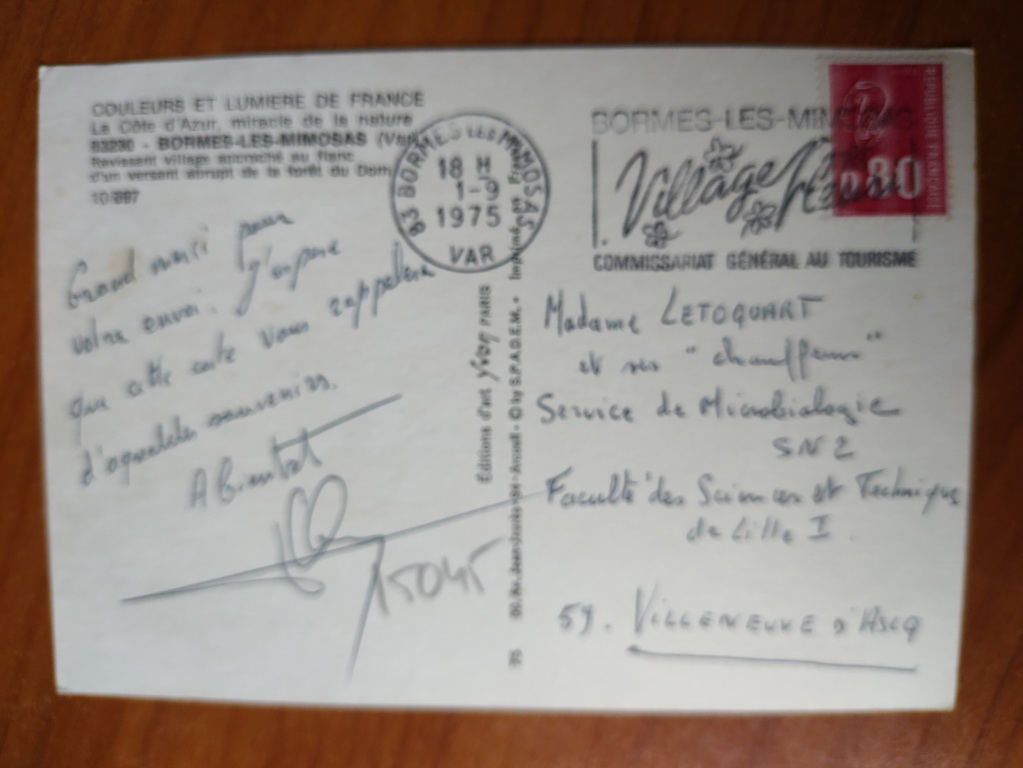 COULEURS ET LUMIERE DE FRANCE
La Côte d'Azur, miracle de la nature
83230 - BORMES-LES-MIMOSAS (Var)
Ravissant village accroché au flanc
d'un versant abrupt de la forêt du Dom
10.897
Grand merci pour
votre envoi. J'espère
que cette carte vous rappelera
d'agréables souvenirs.
A Bientôt
15045
83 BORMES LES MIMOSAS
18 H
1-9
1975
VAR
BORMES-LES-MIMOSAS
Village
COMMISSARIAT GÉNÉRAL AU TOURISME
REPUBLIQUE FRANCAISE
0.80
Editions d'art yvon PARIS
© by S.P.A.D.E.M.
Madame LETOQUART
et ses "chauffeurs"
Service de Microbiologie
SN2
Faculté des Sciences et Technique
de Lille I.
59. VILLENEUVE D'ASCQ